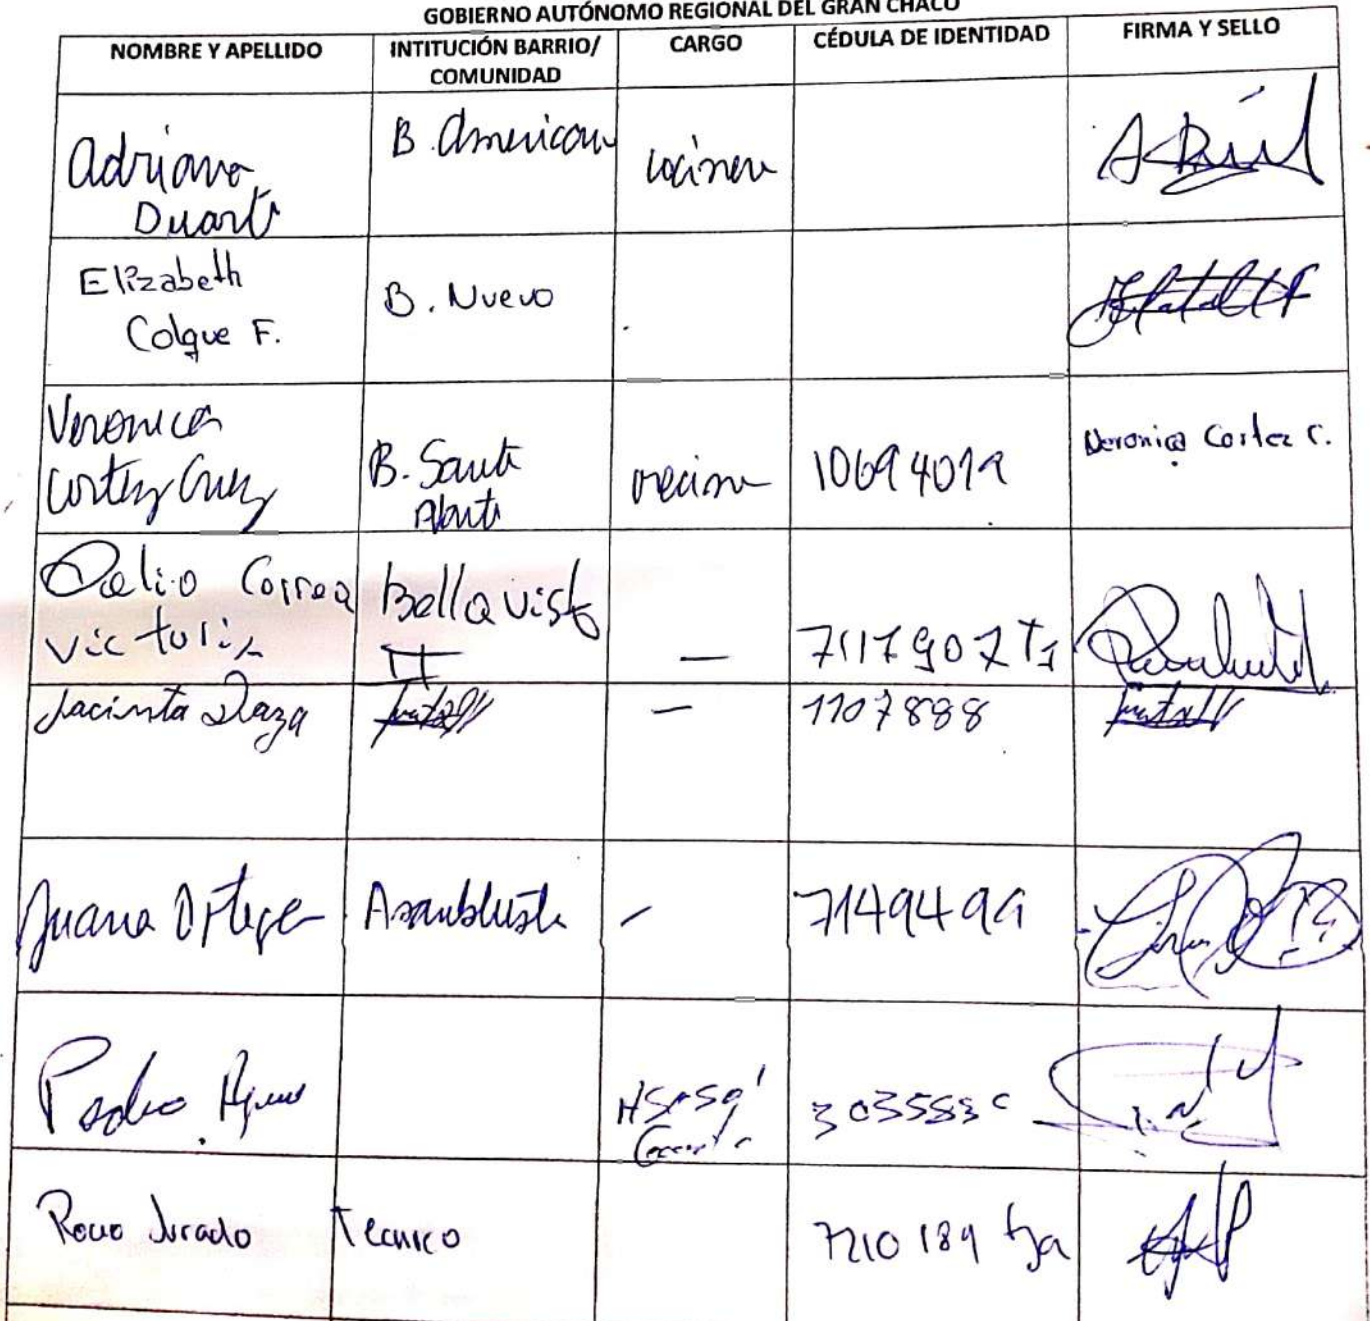 GOBIERNO AUTÓNOMO REGIONAL DEL GRAN CHACO
NOMBRE Y APELLIDO INTITUCIÓN BARRIO/ COMUNIDAD CARGO CÉDULA DE IDENTIDAD FIRMA Y SELLO
Adriana B. American
Duarte
Elizabeth B. Nuevo
Colque F.
Veronica
Cortez Cruz B. Santa 10694019 Veronica Cortez C.
Delio Correa Bella vista
Victoria II — 7117907 Tj
Jacinta Daza — 1107888
Juana Ortega Asambleista - 7149499
Pedro 303553
Rocio Jurado Tecnico 7210189 Tja